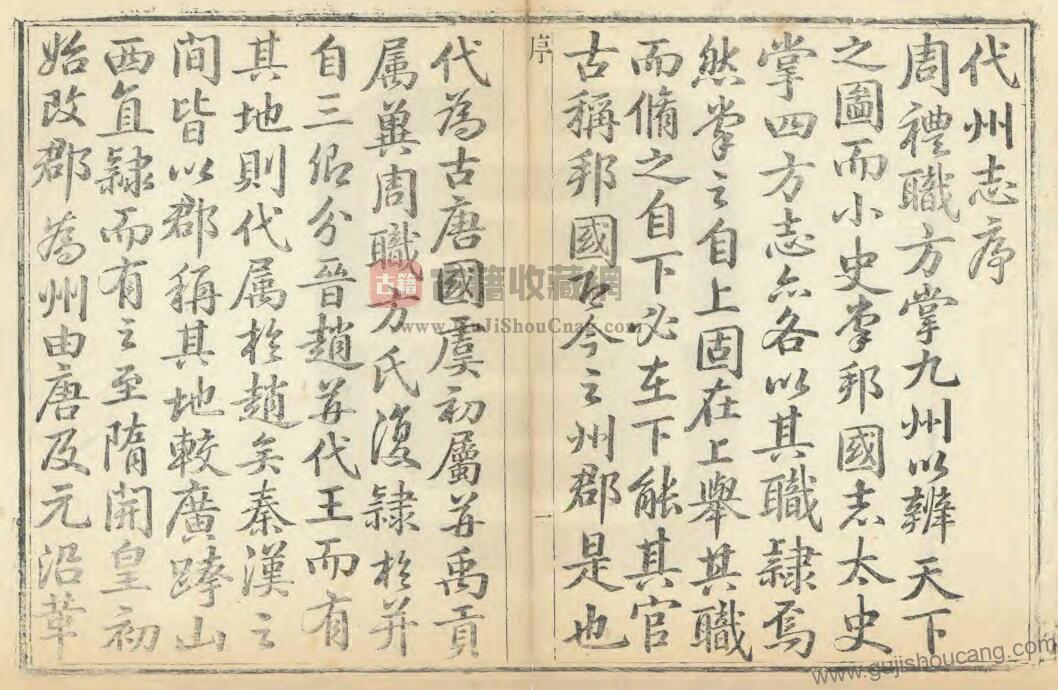 代州志序
周禮職方掌九州以辨天下
之圖而小史掌邦國志太史
掌四方志亦各以其職隸焉
然掌之自上固在上舉其職
而脩之自下必在下能其官
古稱邦國即今之州郡是也
序
一
代為古唐國虞初屬并禹貢
屬冀周職方氏復隸於并
自三卿分晉趙并代王而有
其地則代属於趙矣秦漢之
間皆以郡稱其地較廣跨山
西直隸而有之至隋開皇初
始改郡為州由唐及元沿革
古籍
古籍收藏網
www.GuJiShouCang.com
www.gujishoucang.com